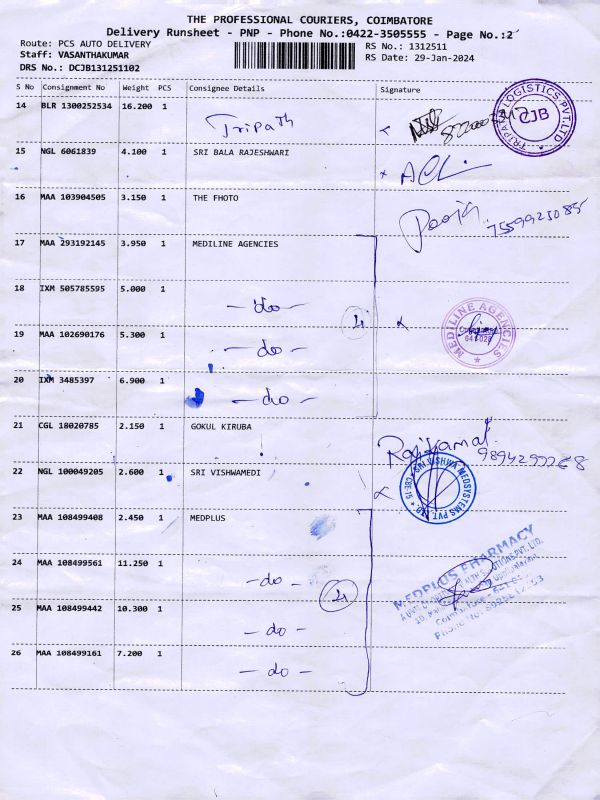 THE PROFESSIONAL COURIERS, COIMBATORE
Delivery Runsheet - PNP - Phone No.:0422-3505555 - Page No.:2
Route: PCS AUTO DELIVERY
RS No.: 1312511
Staff: VASANTHAKUMAR
RS Date: 29-Jan-2024
DRS No.: DCJB131251102
S No Consignment No Weight PCS Consignee Details Signature
14 BLR 1300252534 16.200 1
Tripath
TRIPATH LOGISTICS PVT.LTD
CJB
15 NGL 6061839 4.100 1 SRI BALA RAJESHWARI
16 MAA 103904505 3.150 1 THE FHOTO
Pooja
7559925085
17 MAA 293192145 3.950 1 MEDILINE AGENCIES
18 IXM 505785595 5.000 1
- do -
4
19 MAA 102690176 5.300 1
- do -
MEDILINE AGENCIES
20 IXM 3485397 6.900 1
- do -
21 CGL 18020785 2.150 1 GOKUL KIRUBA
22 NGL 100049205 2.600 1 SRI VISHWAMEDI
SRI VISHWA MEDSYSTEMS PVT. LTD.
CBE-15
23 MAA 108499408 2.450 1 MEDPLUS
24 MAA 108499561 11.250 1
- do -
4
MEDPLUS PHARMACY
25 MAA 108499442 10.300 1
- do -
26 MAA 108499161 7.200 1
- do -